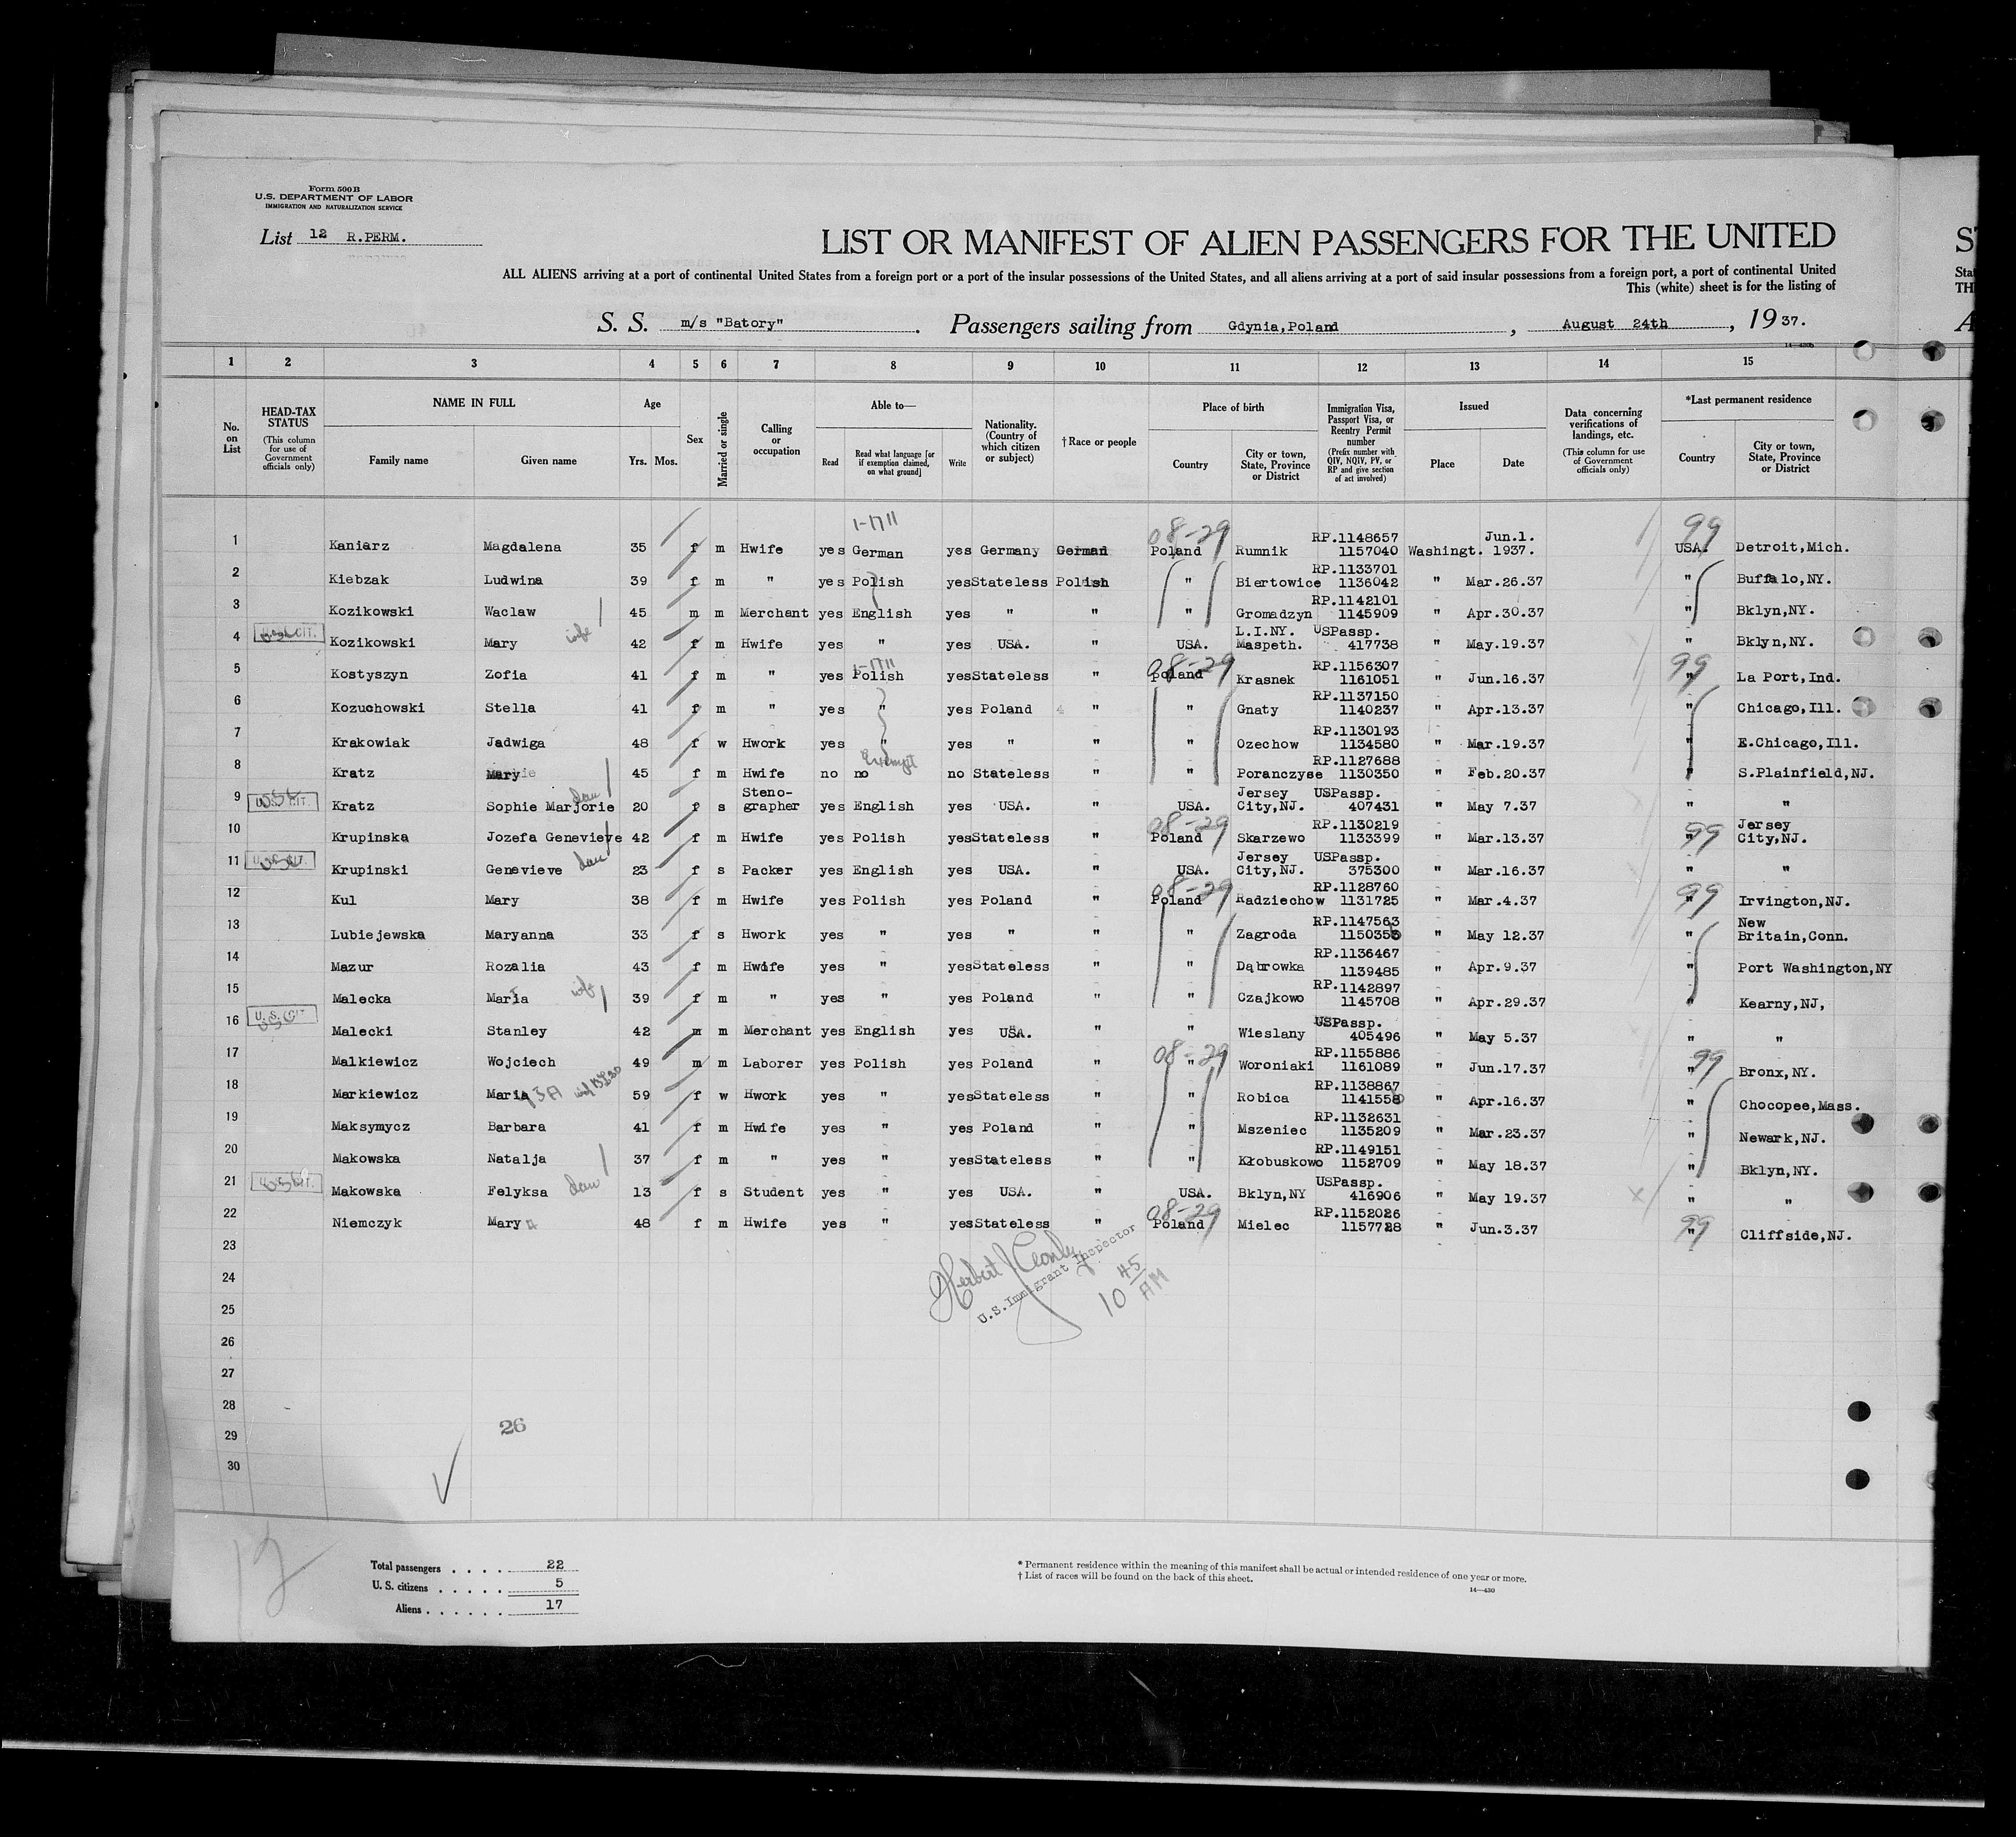 Form 500 B
U.S. DEPARTMENT OF LABOR
IMMIGRATION AND NATURALIZATION SERVICE
List 12 R.PERM.
LIST OR MANIFEST OF ALIEN PASSENGERS FOR THE UNITED
ALL ALIENS arriving at a port of continental United States from a foreign port or a port of the insular possessions of the United States, and all aliens arriving at a port of said insular possessions from a foreign port, a port of continental United
This (white) sheet is for the listing of
S. S. m/s "Batory" . Passengers sailing from Gdynia,Poland , August 24th , 19 37.
1 2 3 4 5 6 7 8 9 10 11 12 13 14 15
No. on List
HEAD-TAX STATUS (This column for use of Government officials only)
NAME IN FULL
Family name Given name
Age
Yrs. Mos.
Sex
Married or single
Calling or occupation
Able to—
Read Read what language [or if exemption claimed, on what ground] Write
Nationality. (Country of which citizen or subject)
†Race or people
Place of birth
Country City or town, State, Province or District
Immigration Visa, Passport Visa, or Reentry Permit number (Prefix number with QIV, NQIV, PV, or RP and give section of act involved)
Issued
Place Date
Data concerning verifications of landings, etc. (This column for use of Government officials only)
*Last permanent residence
Country City or town, State, Province or District
1 Kaniarz Magdalena 35 f m Hwife yes German yes Germany German Poland Rumnik RP.1148657 1157040 Washingt. Jun.1. 1937. USA. Detroit,Mich.
2 Kiebzak Ludwina 39 f m " yes Polish yes Stateless Polish " Biertowice RP.1133701 1136042 " Mar.26.37 " Buffalo,NY.
3 Kozikowski Waclaw 45 m m Merchant yes English yes " " " Gromadzyn RP.1142101 1145909 " Apr.30.37 " Bklyn,NY.
4 U.S. CIT. Kozikowski Mary wife 42 f m Hwife yes " yes USA. " USA. L.I.NY. Maspeth. USPassp. 417738 " May.19.37 " Bklyn,NY.
5 Kostyszyn Zofia 41 f m " yes Polish yes Stateless " Poland Krasnek RP.1156307 1161051 " Jun.16.37 " La Port,Ind.
6 Kozuchowski Stella 41 f m " yes " yes Poland " " Gnaty RP.1137150 1140237 " Apr.13.37 " Chicago,Ill.
7 Krakowiak Jadwiga 48 f w Hwork yes " yes " " " Ozechow RP.1130193 1134580 " Mar.19.37 " E.Chicago,Ill.
8 Kratz Mary 45 f m Hwife no no Exempt no Stateless " " Poranczyse RP.1127688 1130350 " Feb.20.37 " S.Plainfield,NJ.
9 U.S. CIT. Kratz Sophie Marjorie dau 20 f s Steno- grapher yes English yes USA. " USA. Jersey City,NJ. USPassp. 407431 " May 7.37 " "
10 Krupinska Jozefa Genevieve 42 f m Hwife yes Polish yes Stateless " Poland Skarzewo RP.1130219 1133399 " Mar.13.37 " Jersey City,NJ.
11 U.S. CIT. Krupinski Genevieve dau 23 f s Packer yes English yes USA. " USA. Jersey City,NJ. USPassp. 375300 " Mar.16.37 " "
12 Kul Mary 38 f m Hwife yes Polish yes Poland " Poland Radziechow RP.1128760 1131725 " Mar.4.37 " Irvington,NJ.
13 Lubiejewska Maryanna 33 f s Hwork yes " yes " " " Zagroda RP.1147563 " May 12.37 " New Britain,Conn.
14 Mazur Rozalia 43 f m Hwife yes " yes Stateless " " Dąbrowka RP.1136467 1139485 " Apr.9.37 " Port Washington,NY
15 Malecka Maria wife 39 f m " yes " yes Poland " " Czajkowo RP.1142897 1145708 " Apr.29.37 " Kearny,NJ,
16 U. S. CIT Malecki Stanley 42 m m Merchant yes English yes USA. " " Wieslany USPassp. 405496 " May 5.37 " "
17 Malkiewicz Wojciech 49 m m Laborer yes Polish yes Poland " " Woroniaki RP.1155886 1161089 " Jun.17.37 " Bronx,NY.
18 Markiewicz Maria 59 f w Hwork yes " yes Stateless " " Robica RP.1138867 " Apr.16.37 " Chocopee,Mass.
19 Maksymycz Barbara 41 f m Hwife yes " yes Poland " " Mszeniec RP.1132631 1135209 " Mar.23.37 " Newark,NJ.
20 Makowska Natalja 37 f m " yes " yes Stateless " " Kłobuskowo RP.1149151 1152709 " May 18.37 " Bklyn,NY.
21 U.S. CIT. Makowska Felyksa dau 13 f s Student yes " yes USA. " USA. Bklyn,NY USPassp. 416906 " May 19.37 " "
22 Niemczyk Mary 48 f m Hwife yes " yes Stateless " Poland Mielec RP.1152026 1157728 " Jun.3.37 " Cliffside,NJ.
23
24
25
26
27
28
29
30
08-29
99
U.S.Immigrant Inspector
10 45 AM
26
12
Total passengers . . . . 22
U. S. citizens . . . . . 5
Aliens . . . . . . 17
* Permanent residence within the meaning of this manifest shall be actual or intended residence of one year or more.
† List of races will be found on the back of this sheet.
14—430